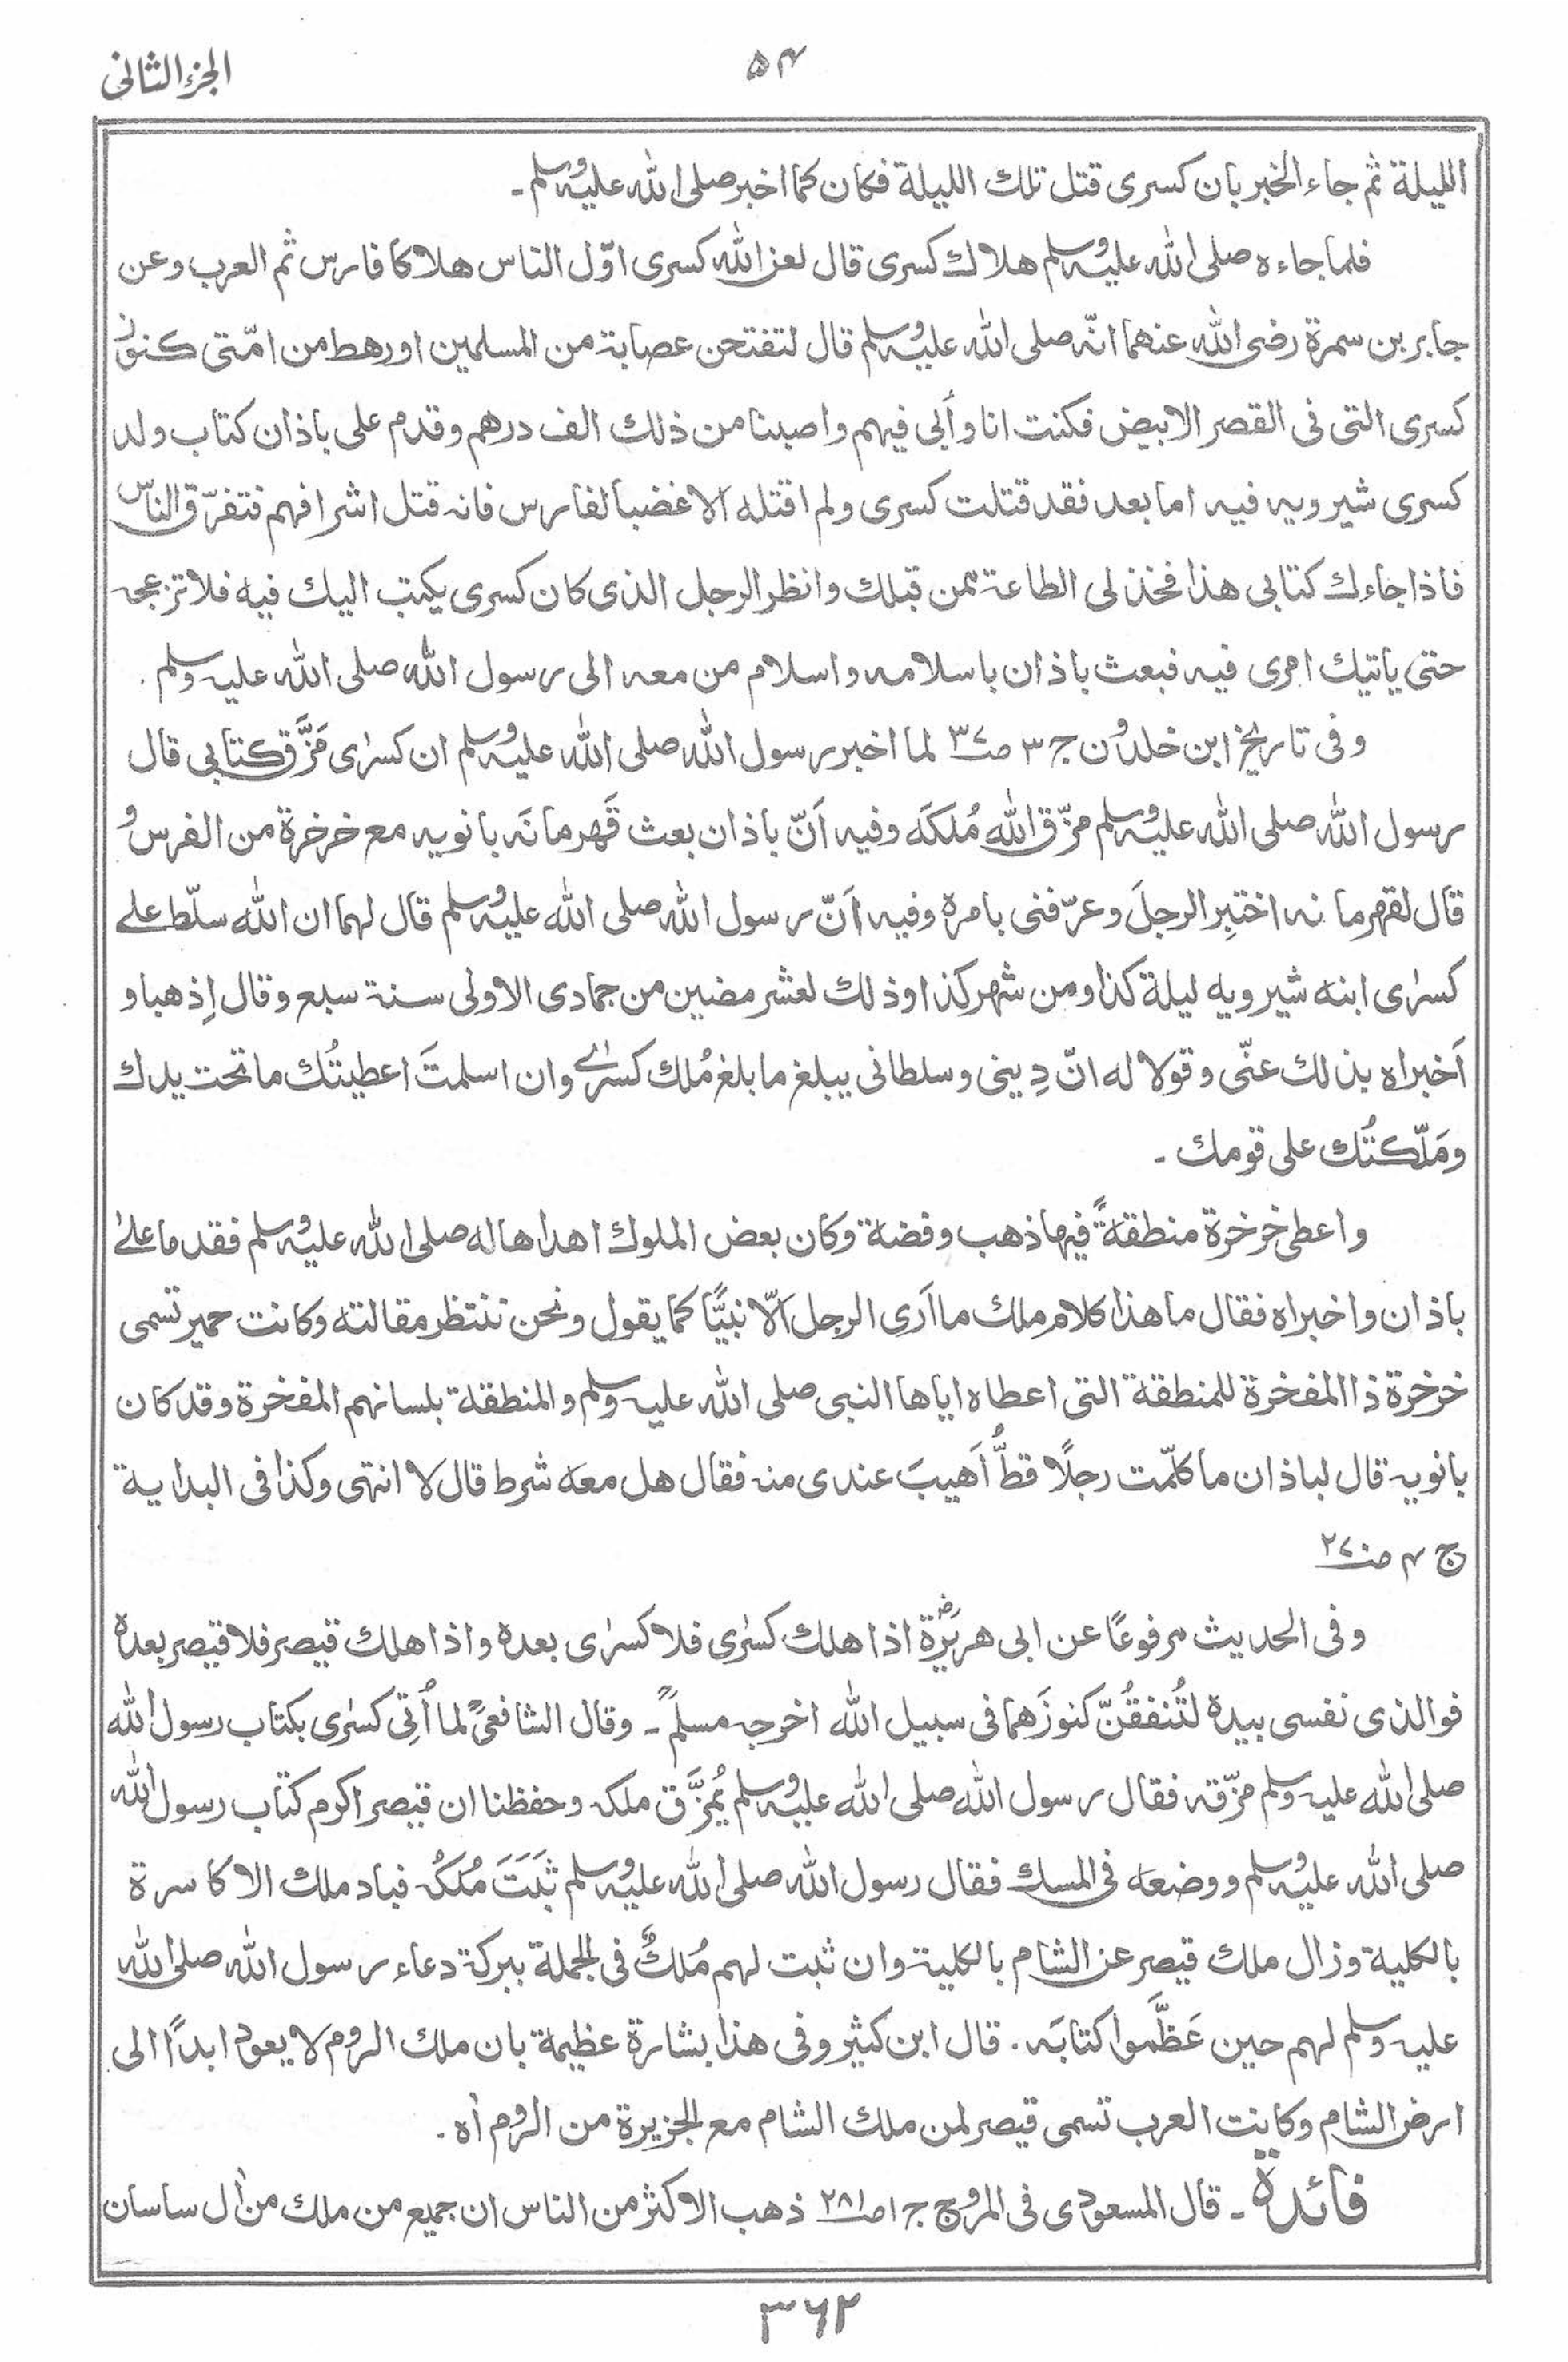 ۵۴
الجزء الثانی
الليلة ثم جاء الخبر بان كسرى قتل تلك الليلة فكان كما اخبر صلى الله عليه وسلم۔
فلما جاءه صلى الله عليه وسلم هلاك كسرى قال لعن الله كسرى اوّل الناس هلاكا فارس ثم العرب وعن
جابر بن سمرة رضى الله عنهما انّه صلى الله عليه وسلم قال لتفتحن عصابة من المسلمين او رهط من امّتى كنوز
كسرى التى فى القصر الابيض فكنت انا وأبى فيهم واصبنا من ذلك الف درهم وقدم على باذان كتاب ولد
كسرى شيرويه فيه اما بعد فقد قتلت كسرى ولم اقتله الا غضبا لفارس فانه قتل اشرافهم فتفرّق الناس
فاذا جاءك كتابى هذا فخذ لى الطاعة ممن قبلك وانظر الرجل الذى كان كسرى يكتب اليك فيه فلا تزعجه
حتى ياتيك امرى فيه فبعث باذان باسلامه واسلام من معه الى رسول الله صلى الله عليه وسلم .
وفى تاريخ ابن خلدون ج ۳ صـ۳۷ لما اخبر رسول الله صلى الله عليه وسلم ان كسرٰى مَزَّق كتابى قال
رسول الله صلى الله عليه وسلم مزّق الله مُلكَه وفيه اَنّ باذان بعث قَهرمانَه بانويه مع خرخرة من الفرس و
قال لقهرمانه اختبِر الرجلَ وعرّفنى بامره وفيه اَنّ رسول الله صلى الله عليه وسلم قال لهما ان الله سلّط على
كسرٰى ابنه شيرويه ليلة كذا ومن شهر كذا وذلك لعشر مضين من جمادى الاولى سنة سبع وقال اِذهبا و
اَخبراه بذلك عنّى وقولا له انّ دِينى وسلطانى يبلغ ما بلغ مُلك كسرٰے وان اسلمتَ اعطيتُك ما تحت يدك
ومَلّكتُك على قومك ۔
واعطى خرخرة منطقةً فيها ذهب وفضة وكان بعض الملوك اهداها له صلى الله عليه وسلم فقدما علىٰ
باذان واخبراه فقال ما هذا كلام ملك ما اَرى الرجل الّا نبيًّا كما يقول ونحن ننتظر مقالته وكانت حمير تسمى
خرخرة ذا المفخرة للمنطقة التى اعطاه اياها النبى صلى الله عليه وسلم والمنطقة بلسانهم المفخرة وقد كان
بانويه قال لباذان ما كلّمت رجلًا قطُّ اَهيبَ عندى منه فقال هل معه شرط قال لا انتهى وكذا فى البداية
ج ۴ صـ۲۷۰
وفى الحديث مرفوعًا عن ابى هريرةؓ اذا هلك كسرٰى فلا كسرٰى بعده واذا هلك قيصر فلا قيصر بعده
فوالذى نفسى بيده لتُنفقُنّ كنوزَهما فى سبيل الله اخرجه مسلمؒ ۔ وقال الشافعىؒ لما اُتِى كسرٰى بكتاب رسول الله
صلى الله عليه وسلم مزّقه فقال رسول الله صلى الله عليه وسلم يُمَزَّق ملكه وحفظنا ان قيصر اكرم كتاب رسول الله
صلى الله عليه وسلم ووضعه فى المسك فقال رسول الله صلى الله عليه وسلم ثَبَتَ مُلكُه فباد ملك الاكاسرة
بالكلية وزال ملك قيصر عن الشام بالكلية وان ثبت لهم مُلكٌ فى الجملة ببركة دعاء رسول الله صلى الله
عليه وسلم لهم حين عَظَّموا كتابَه . قال ابن كثير وفى هذا بشارة عظيمة بان ملك الروم لا يعود ابدًا الى
ارض الشام وكانت العرب تسمى قيصر لمن ملك الشام مع الجزيرة من الروم اه .
فائدة ۔ قال المسعودى فى المروج ج ۱ صـ۲۸۱ ذهب الاكثر من الناس ان جميع من ملك من اٰل ساسان
۳۶۲